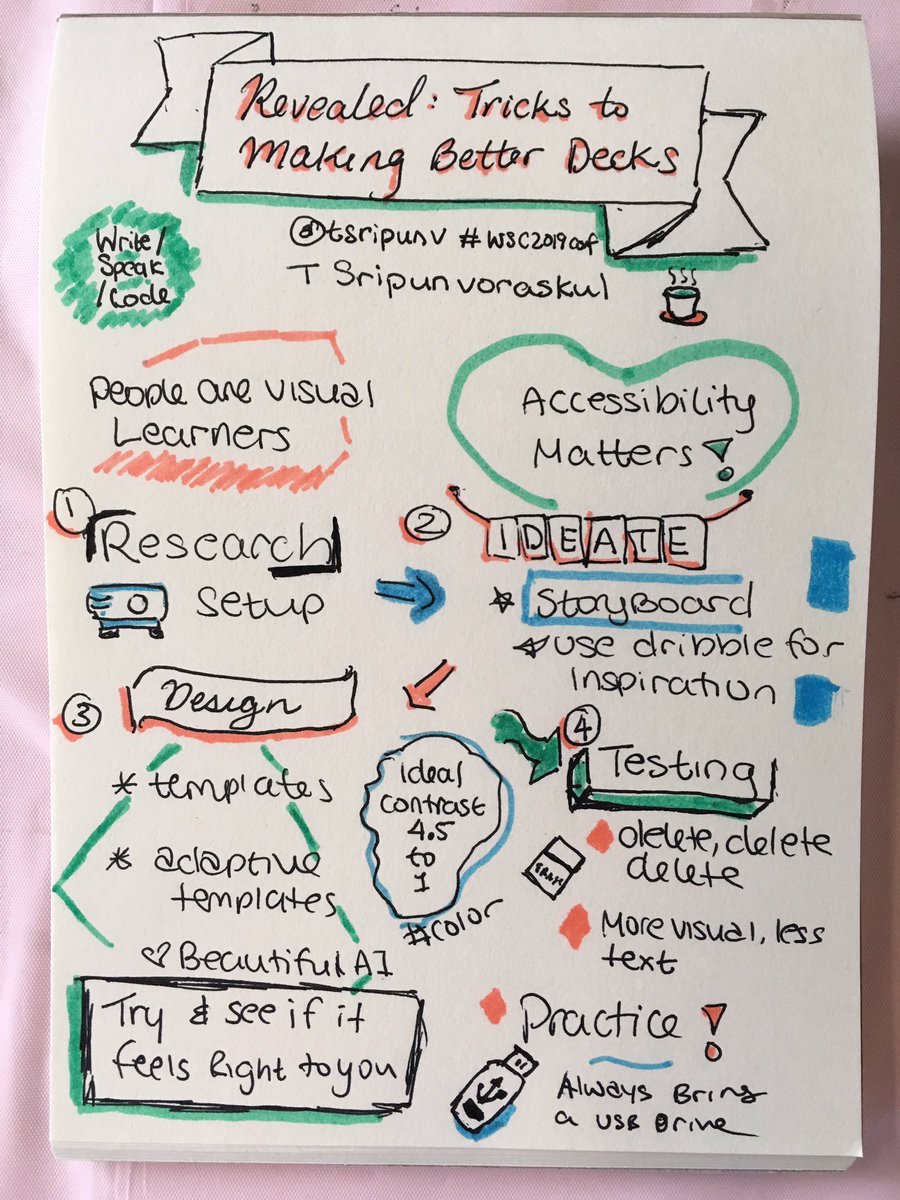 Revealed: Tricks to
Making Better Decks
@tsripunv #WSC2019cof
T Sripunvoraskul
Write/
Speak
/Code
People are visual
Learners
Accessibility
Matters!
1
Research
Setup
2
IDEATE
* StoryBoard
* use dribble for
inspiration
3
Design
* templates
* adaptive
templates
♡ Beautiful AI
Try & see if it
feels Right to you
ideal
contrast
4.5
to
1
#color
4
Testing
delete, delete
delete
ERASE
More visual, less
text
Practice!
Always Bring
a USB Drive